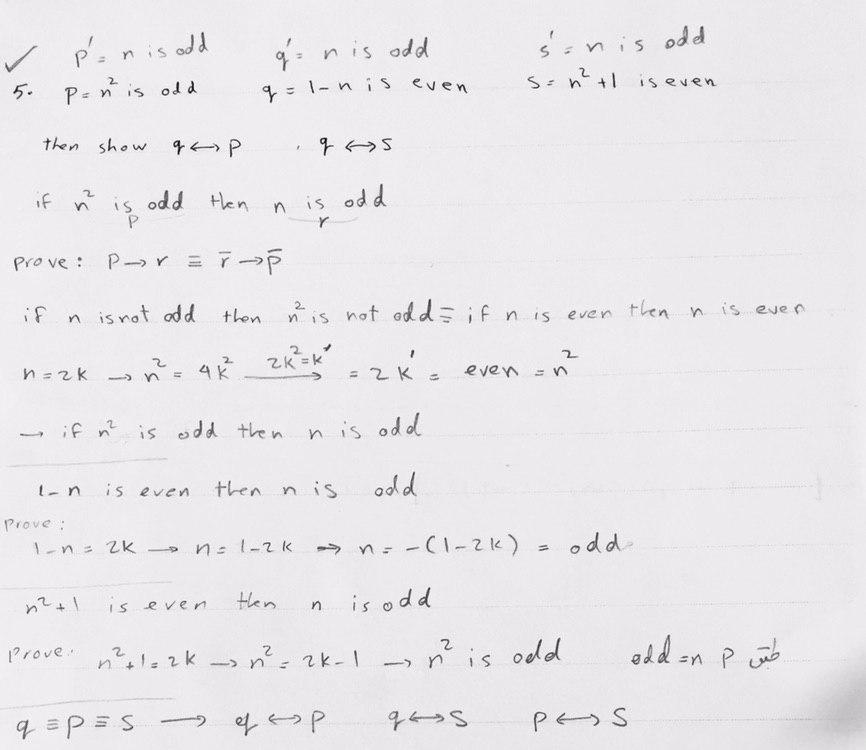 ✓ p' = n is odd q' = n is odd s' = n is odd
5. p = n² is odd q = 1 - n is even s = n² + 1 is even
then show q ↔ p , q ↔ s
if n² is odd then n is odd
p r
prove: p → r ≡ r̄ → p̄
if n is not odd then n² is not odd ≡ if n is even then n is even
n = 2k → n² = 4k² 2k² = k' → = 2k' = even = n²
→ if n² is odd then n is odd
1 - n is even then n is odd
prove:
1 - n = 2k → n = 1 - 2k → n = -(1 - 2k) = odd
n² + 1 is even then n is odd
prove: n² + 1 = 2k → n² = 2k - 1 → n² is odd odd = n p طبق
q ≡ p ≡ s → q ↔ p q ↔ s p ↔ s